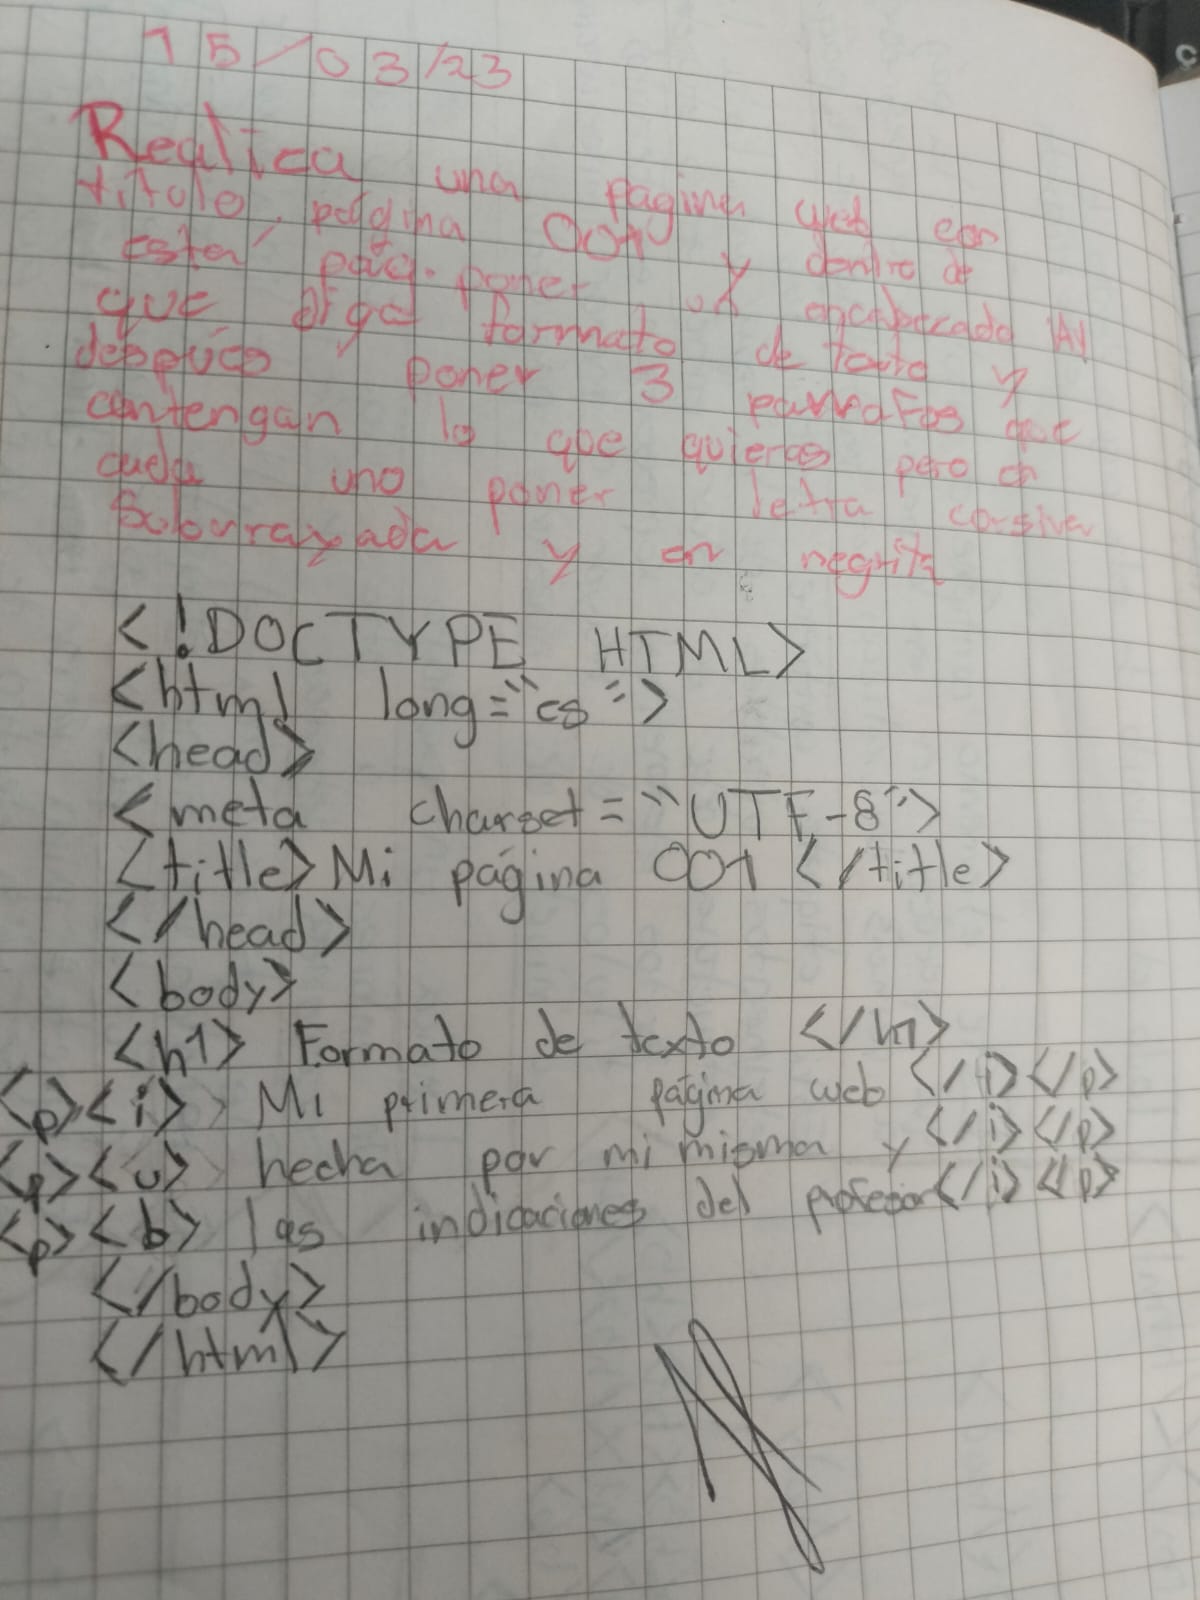 15/03/23
Realica una pagina web con
titulo, página 001 y dentro de
esta pág. poner un encabezado
que diga formato de texto y
después poner 3 parrafos que
contengan lo que quieras pero en
cada uno poner letra corsiva
Subrayada y en negrita
<!DOCTYPE HTML>
<html long="es">
<head>
<meta charset="UTF-8">
<title>Mi página 001 </title>
</head>
<body>
<h1> Formato de texto </h1>
<p><i> Mi primera página web </i></p>
<p><u> hecha por mi misma y </i></p>
<p><b> las indicaciones del profesor</i></p>
</body>
</html>